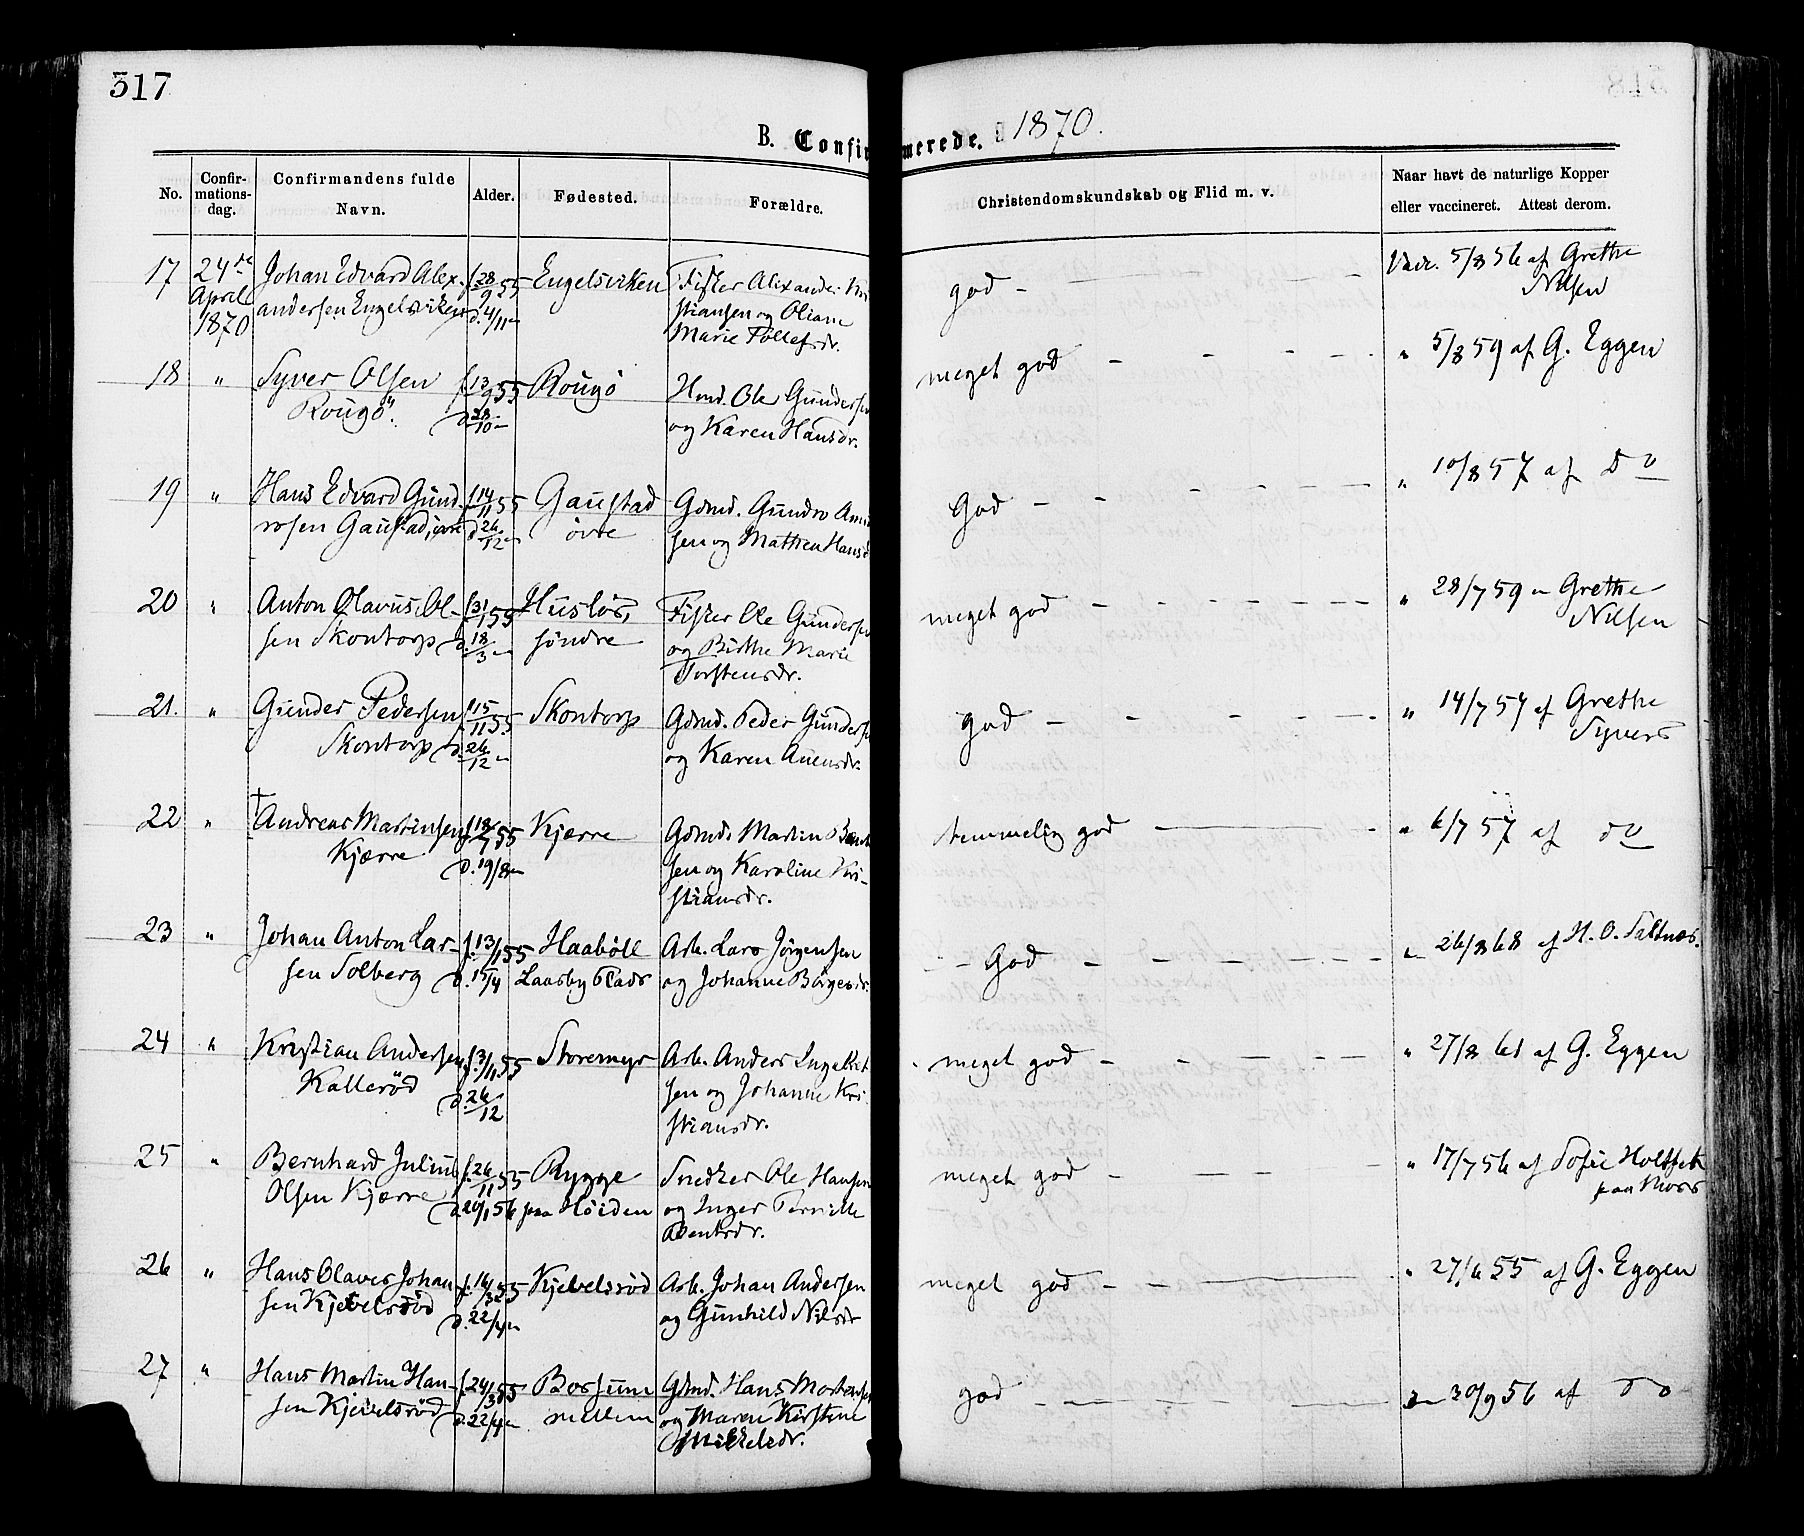 317
B. Confirmerede. 1870.
No.
Confir-
mations-
dag.
Confirmandens fulde
Navn.
Alder.
Fødested.
Forældre.
Christendomskundskab og Flid m. v.
Naar havt de naturlige Kopper
eller vaccineret. Attest derom.
17
24de
April
1870
Johan Edvard Alex-
andersen Engelsviken
f. 28/9 55
d. 4/11 "
Engelsviken
Fisker Alexander Kri
stiansen og Oliane
Marie Tollefsdr.
god
Vacc. 5/8 56 af Grethe
Nilsen
18 "
Syver Olsen
Rougö
f. 13/9 55
d. 28/10 "
Rougö
Hmd. Ole Gundersen
og Karen Hansdr.
meget god
" 5/8 59 af G. Eggen
19 "
Hans Edvard Gund-
rosen Gaustad, øvre
f. 14/11 55
d. 26/12 "
Gaustad
øvre
Gdmd. Gundro Amu
sen og Mathea Hansd
God
" 10/8 57 af do
20 "
Anton Olavus Ol-
sen Skontorp
f. 31/1 55
d. 18/3 "
Huslös,
söndre
Fisker Ole Gundersen
og Birthe Marie
Torstensdr.
meget god
" 28/7 59 " Grethe
Nilsen
21. "
Gunder Pedersen
Skontorp
f. 15/11 55
d. 26/12 "
Skontorp
Gdmd. Peder Gunderse
og Karen Auensdr.
god
" 14/7 57 af Grethe
Syvers
22 "
† Andreas Martinsen
Kjærre
f. 18/7 55
d. 19/8 "
Kjærre
Gdmd. Martin Bent
sen og Karoline Kri-
stiansdr.
temmelig god
" 6/7 57 af do
23 "
Johan Anton Lar-
sen Solberg
f. 13/1 55
d. 15/4
Haaböll
Laasby Plads
Arb. Lars Jörgensen
og Johanne Börgesdr.
God
" 26/8 68 af H. O. Saltnæs.
24 "
Kristian Andersen
Kallerød
f. 3/11 55
d. 26/12
Storemyr
Arb. Anders Ingebret
sen og Johanne Kri-
stiansdr.
meget god
" 27/8 61 af G. Eggen
25 "
Bernhard Julius
Olsen Kjærre
f. 26/11 55
d. 20/1 56
Rygge
paa Höiden
Snedker Ole Hansen
og Inger Pernille
Bentsdr.
meget god
" 17/7 56 af Sofie Holtfek
paa Moss
26 "
Hans Olaves Johan
sen Kjevelsröd
f. 16/3 55
d. 22/4 "
Kjevelsröd
Arb. Johan Andersen
og Gunhild Nilsdr
meget god
" 27/6 55 af G. Eggen
27 "
Hans Martin Han-
sen Kjevelsröd
f. 24/3 55
d. 22/4 "
Bossum
mellem
Gdmd. Hans Mortensen
og Maren Kirstine
Mikkelsdr.
god
" 30/9 56 af do